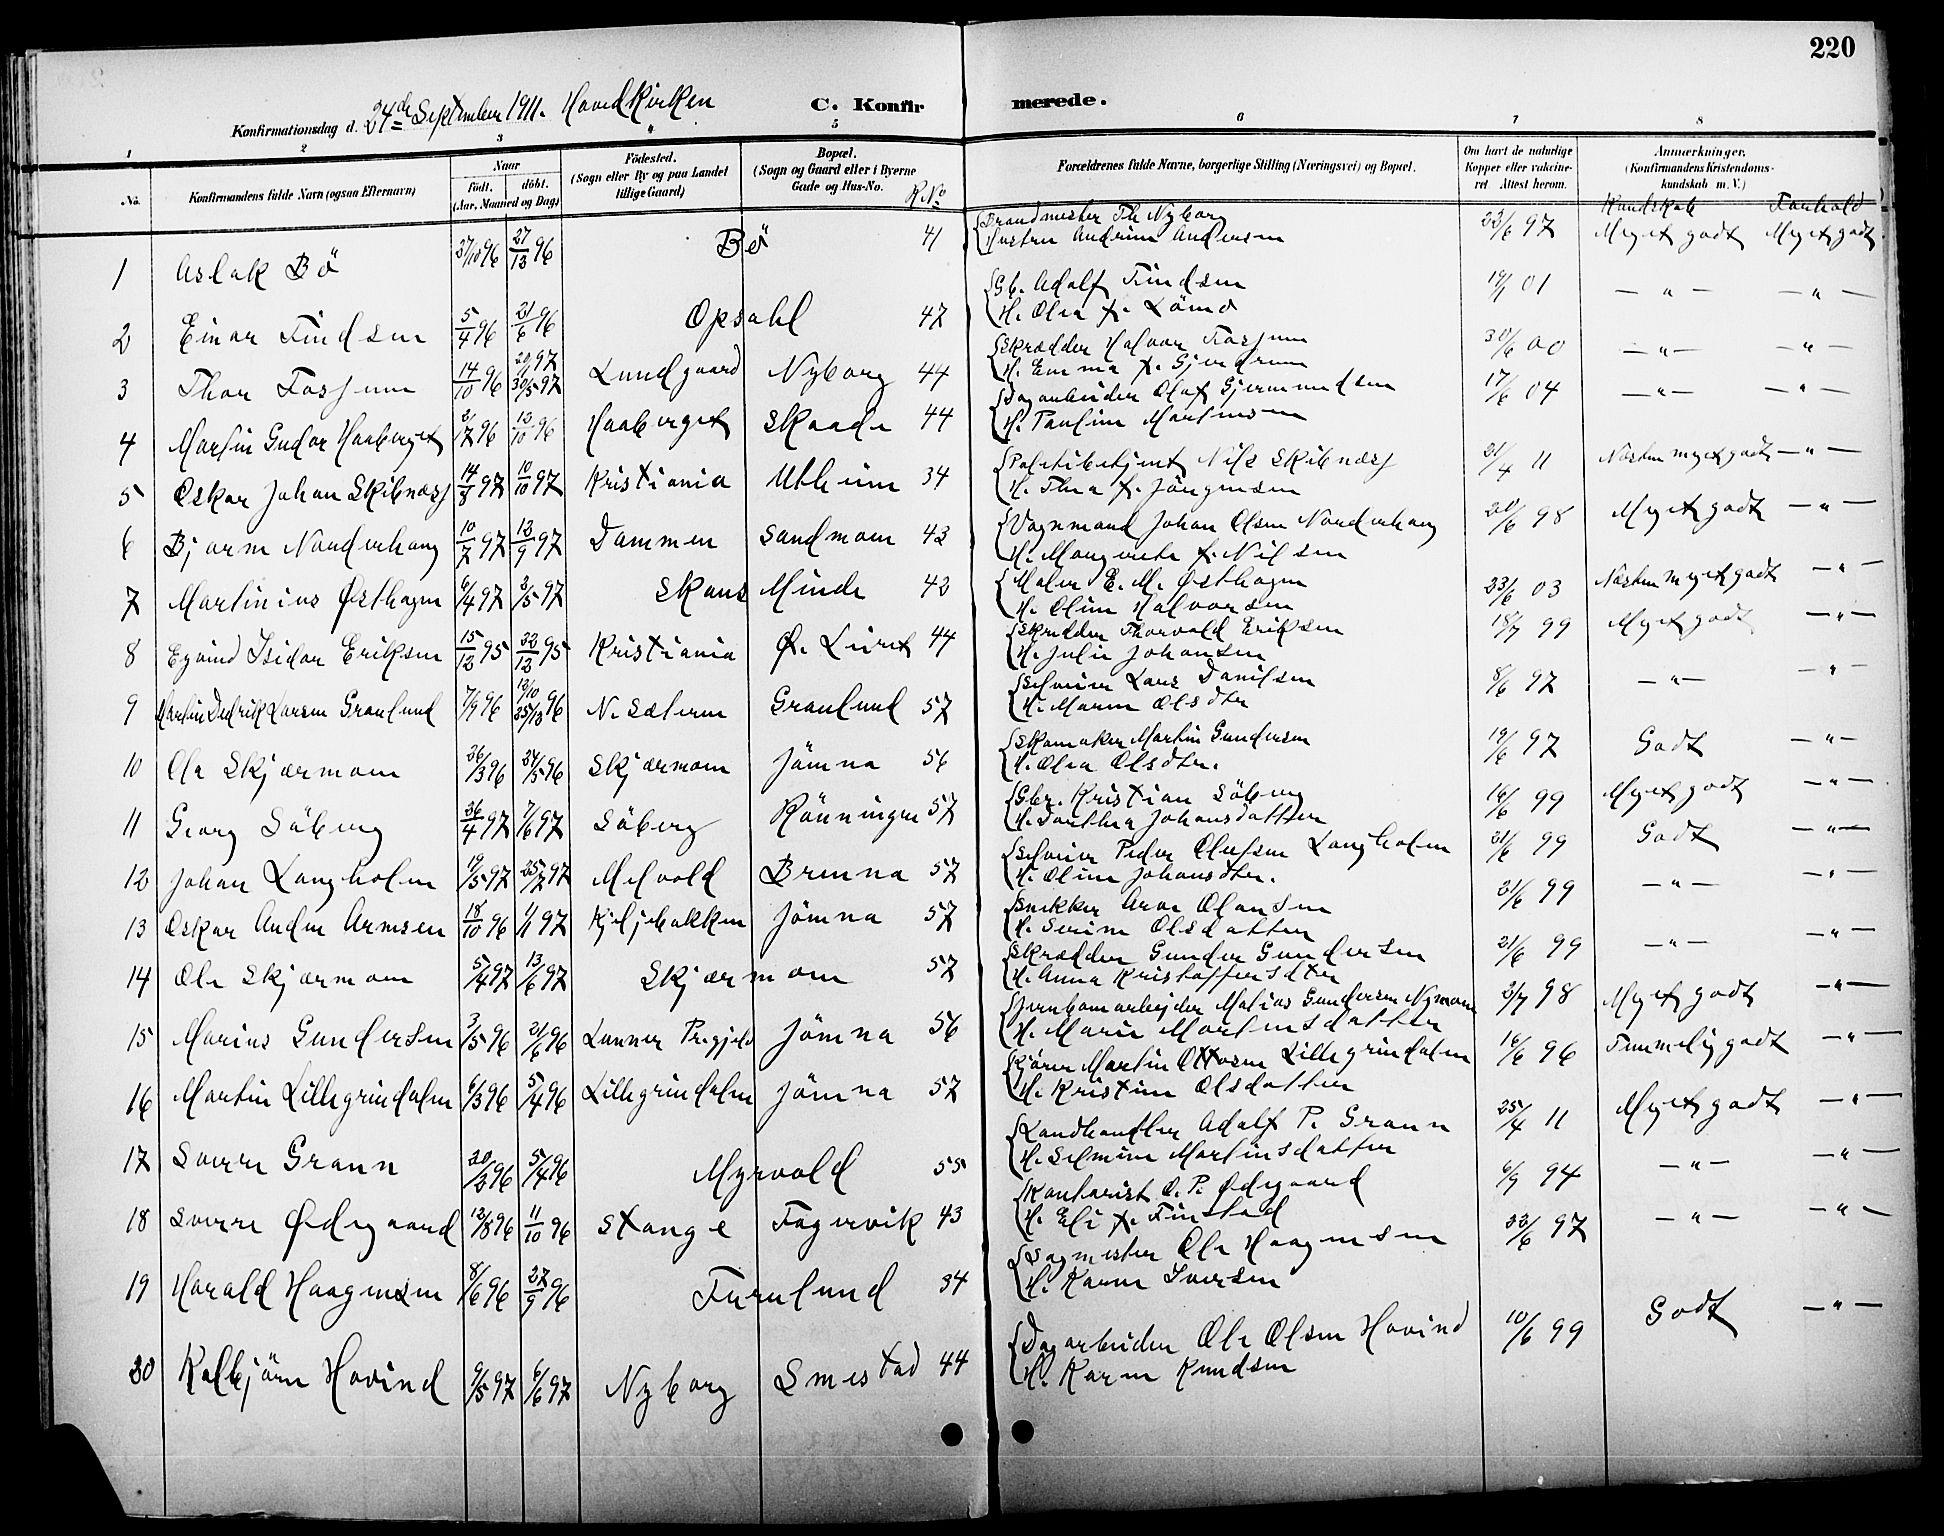 220
Konfirmationsdag d. 24de September 1911. Hovedkirken C. Konfirmerede.
1 2 3 4 5 6 7 8
No. Konfirmandens fulde Navn (ogsaa Efternavn) Naar født. døbt. (Aar, Maaned og Dag) Fødested. (Sogn eller By og paa Landet tillige Gaard) Bopæl. (Sogn og Gaard eller i Byerne Gade og Hus-No. R.No Forældrenes fulde Navne, borgerlige Stilling (Næringsvei) og Bopæl. Om havt de naturlige Kopper eller vakcineret Attest herom. Anmærkninger. (Konfirmandens Kristendomskundskab m. V.)
Kundskab Forhold
1 Aslak Bö 27/10 96 27/12 96 Bö 41 Brandmester Th Nyborg
Hustru Andrine Andersen 22/6 97 Meget godt Meget godt
2 Einar Findsen 5/4 96 21/6 96 Opsahl 47 Gb. Adolf Findsen
H. Olea f. Lömo 19/7 01 — " — — " —
3 Thor Fossum 14/10 96 30/5 97 Lundgaard Nyborg 44 Skrædder Halvor Fossum
H. Emma f. Gjerdrum 30/6 00 — " — — " —
4 Martin Gudor Haaberget 2/7 96 12/10 96 Haaberget Skaade 44 Dagarbeider Olaf Gjermundsen
H. Pauline Martinsen 17/6 04 — " — — " —
5 Oskar Johan Skibnæss 14/8 97 10/10 97 Kristiania Utheim 34 Politibetjent Nils Skibnæss
H. Thea f. Jörgensen 21/4 11 Næsten meget godt — " —
6 Bjarne Norderhaug 10/7 97 12/9 97 Dammen Sandmoen 43 Vognmand Johan Olsen Norderhaug
H. Margrete f. Nilsen 20/6 98 Meget godt — " —
7 Martinius Østhagen 6/4 97 2/5 97 Skans Minde 42 Maler E. M. Østhagen
H. Oline Halvorsen 23/6 03 Næsten meget godt — " —
8 Eyvind Isidor Eriksen 15/12 95 22/12 95 Kristiania Ø. Leiret 44 Skrædder Thorvald Eriksen
H. Julie Johansen 18/7 99 Meget godt — " —
9 Martin Dedrik Larsen Granlund 7/9 96 25/12 96 N. Sæteren Granlund 57 Selveier Lars Danilsen
H. Maren Olsdtr 8/6 97 — " — — " —
10 Ole Skjærmoen 26/3 96 24/5 96 Skjærmoen Jömna 56 Skomaker Martin Gundersen
H. Olea Olsdtr. 19/6 97 Godt — " —
11 Georg Söberg 26/4 97 7/6 97 Söberg Rönningen 57 Gbr. Kristian Söberg
H. Dorthea Johansdatter 16/6 99 Meget godt — " —
12 Johan Langholen 19/5 97 25/7 97 Melvold Brenna 57 Selveier Peder Olufsen Langholen
H. Oline Johansdtr. 21/6 99 Godt — " —
13 Oskar Andin Arnesen 18/10 96 1/1 97 Kjeljebakken Jömna 57 Snekker Arne Olausen
H. Serine Olsdatter 21/6 99 — " — — " —
14 Ole Skjærmoen 5/4 97 13/6 97 Skjærmoen 57 Skrædder Gunder Gundersen
H. Anna Kristoffersdtr 21/6 99 — " — — " —
15 Marius Gundersen 3/5 96 21/6 96 Lunner Prgjeld Jömna 56 Jernbanearbejder Matias Gundersen Nymoen
H. Marie Martinsdatter 2/7 98 Meget godt — " —
16 Martin Lillegrindalen 6/3 96 5/4 96 Lillegrindalen Jömna 57 Kjörer Martin Ottosen Lillegrindalen
H. Kristine Olsdatter 16/6 96 Temmelig godt — " —
17 Sverre Grann 20/2 96 5/4 96 Myrvold 55 Landhandler Adolf P. Grann
H. Selmine Martinsdatter 25/4 11 Meget godt — " —
18 Sverre Ødegaard 12/8 96 11/10 96 Stange Fagervik 43 Kontorist O. P. Ødegaard
H. Eli f. Finstad 6/9 94 — " — — " —
19 Harald Haagensen 8/6 96 27/9 96 Furulund 34 Sagmester Ole Haagensen
H. Karen Iversen 22/6 97 — " — — " —
20 Kolbjörn Hovind 9/5 97 6/6 97 Nyborg Smestad 44 Dagarbeider Ole Olsen Hovind
H. Karen Knudsen 10/6 99 Godt — " —